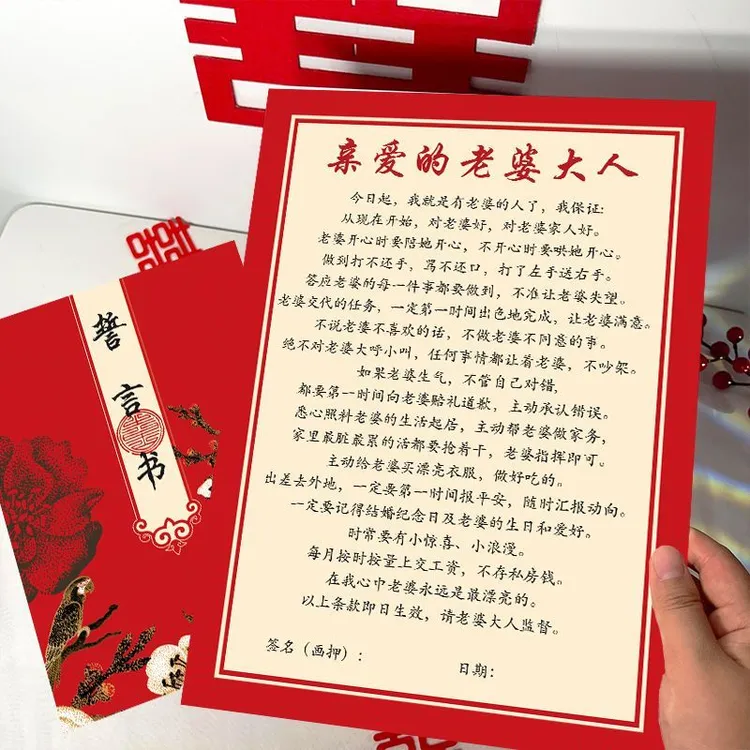 囍
亲爱的老婆大人
今日起，我就是有老婆的人了，我保证:
从现在开始，对老婆好，对老婆家人好。
老婆开心时要陪她开心，不开心时要哄她开心。
做到打不还手，骂不还口，打了左手送右手。
答应老婆的每一件事都要做到，不准让老婆失望。
老婆交代的任务，一定第一时间出色地完成，让老婆满意。
不说老婆不喜欢的话，不做老婆不同意的事。
绝不对老婆大呼小叫，任何事情都让着老婆，不吵架。
如果老婆生气，不管自己对错，
都要第一时间向老婆赔礼道歉，主动承认错误。
悉心照料老婆的生活起居，主动帮老婆做家务，
家里最脏最累的活都要抢着干，老婆指挥即可。
主动给老婆买漂亮衣服，做好吃的。
出差去外地，一定要第一时间报平安，随时汇报动向。
一定要记得结婚纪念日及老婆的生日和爱好。
时常要有小惊喜、小浪漫。
每月按时按量上交工资，不存私房钱。
在我心中老婆永远是最漂亮的。
以上条款即日生效，请老婆大人监督。
签名（画押）:
日期:
誓言书